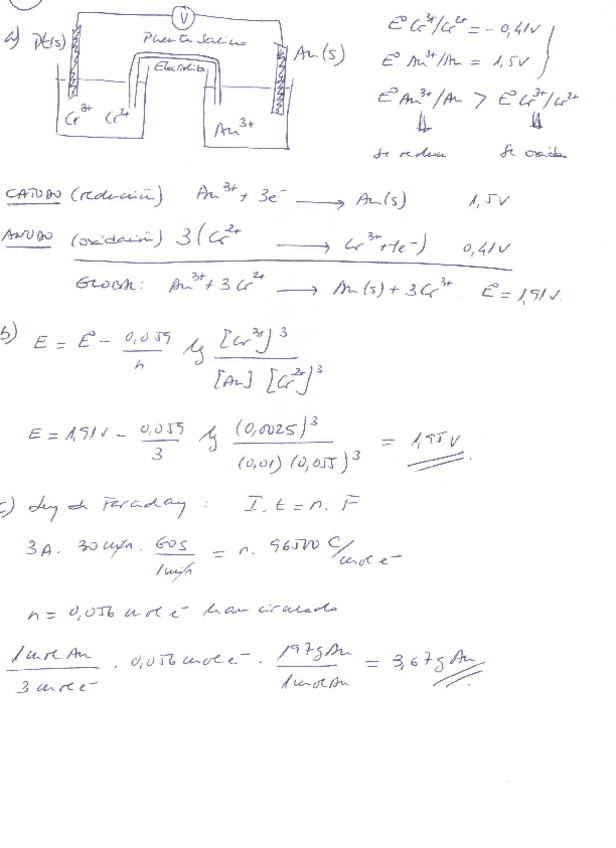 a) Pt(s) V Puente Salino Au(s)
Electrolito
Cr³⁺ Cr²⁺ Au³⁺
E° Cr³⁺/Cr²⁺ = -0,41V
E° Au³⁺/Au = 1,5V
E° Au³⁺/Au > E° Cr³⁺/Cr²⁺
⇓ ⇓
Se reduce Se oxida
CATODO (reducción) Au³⁺ + 3e⁻ ⟶ Au(s) 1,5V
ANODO (oxidación) 3(Cr²⁺ ⟶ Cr³⁺ + 1e⁻) 0,41V
GLOBAL: Au³⁺ + 3Cr²⁺ ⟶ Au(s) + 3Cr³⁺ E° = 1,91V.
b) E = E° - 0,059/n lg [Cr³⁺]³/[Au] [Cr²⁺]³
E = 1,91V - 0,059/3 lg (0,0025)³/(0,01) (0,055)³ = 1,95V.
c) Ley de Faraday: I.t = n.F
3A. 30 min. 60s/1min = n. 96500 C/mol e⁻
n = 0,056 mol e⁻ han circulado
1 mol Au/3 mol e⁻ . 0,056 mol e⁻ . 197g Au/1 mol Au = 3,67g Au